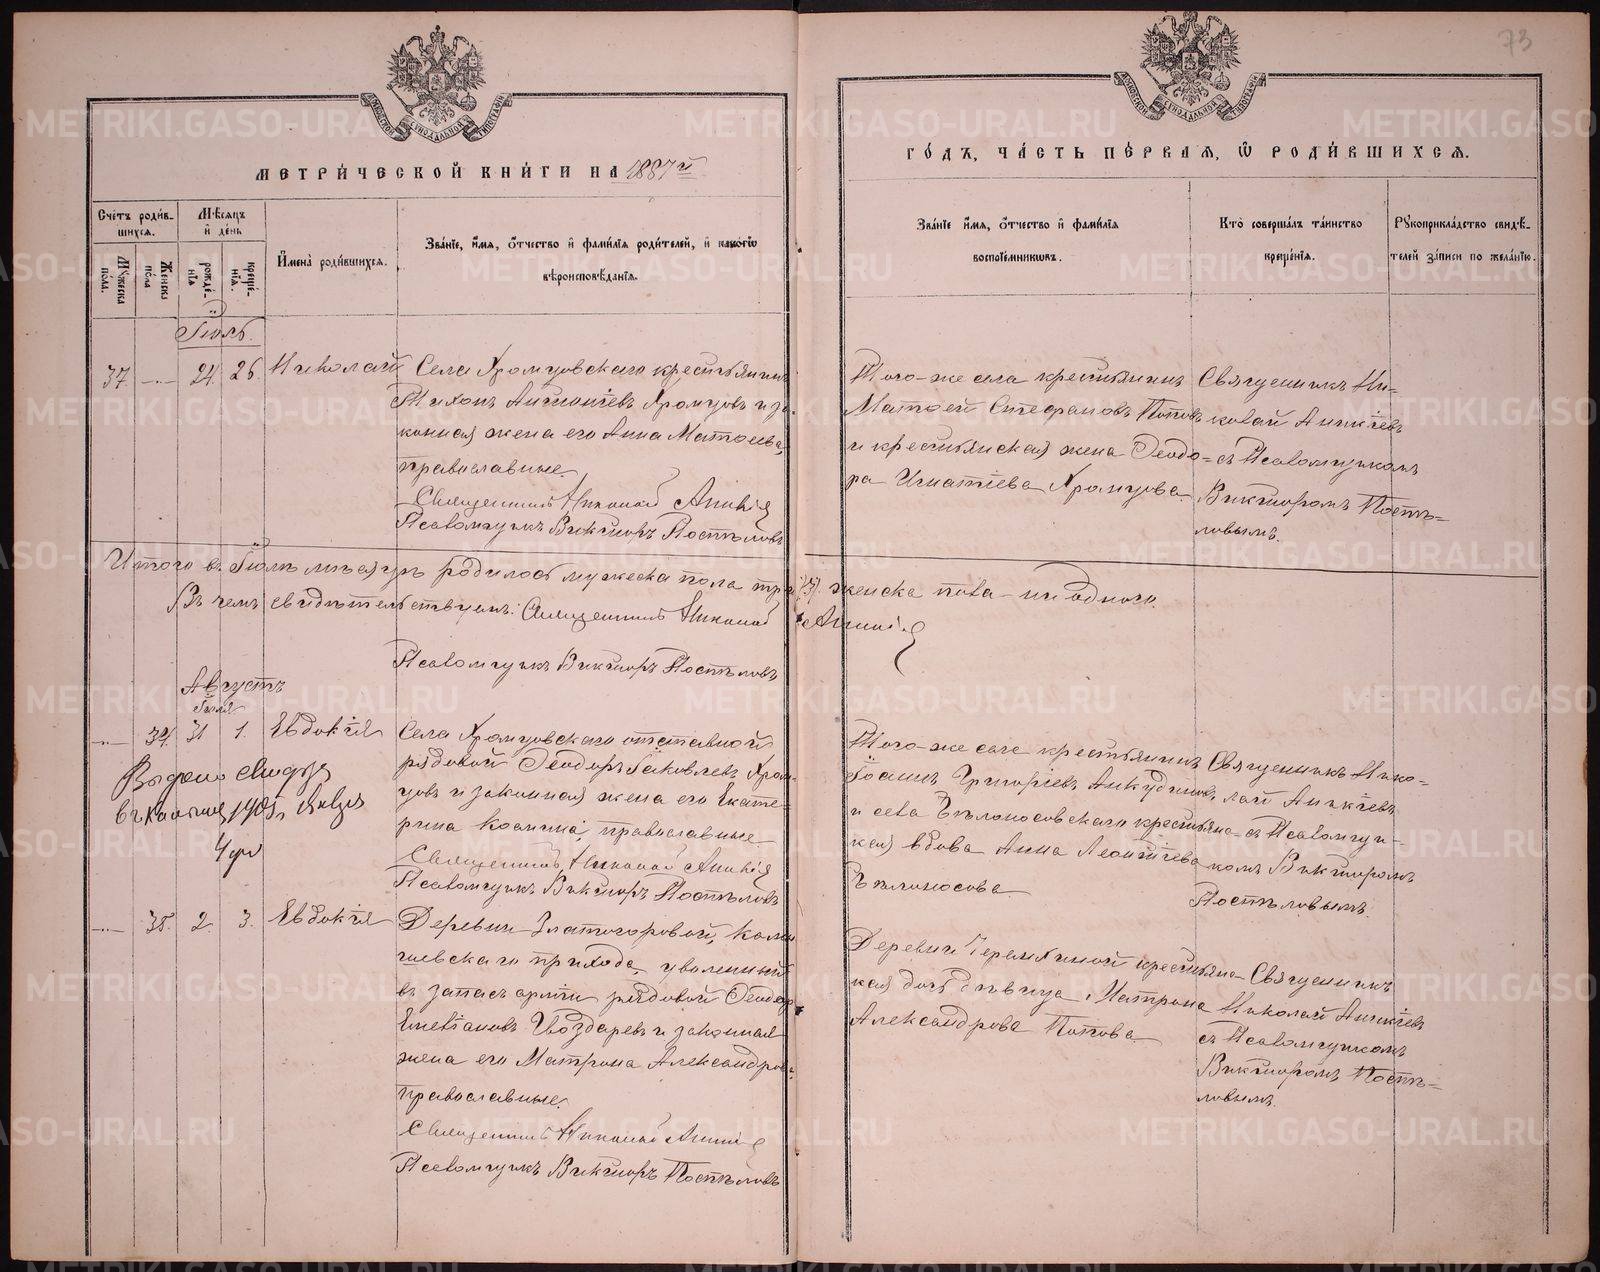 73
МЕТРИ́ЧЕСКОЙ КНИ́ГИ НА 1887й
ГО́ДЪ, ЧА́СТЬ ПЕ́РВАЯ, Ѿ РОДИ́ВШИХСЯ.
Сче́тъ роди́в-
шихся.
Му́жеска по́ла.
Же́нска по́ла
Мѣ́сяцъ и де́нь
рожде́нїя
креще́нїя.
И҆мена̀ роди́вшихся.
Зва́нїе, и҆́мя, ѻ҆́тчество и҆ фами́лїя роди́телей, и҆ како́гѡ
вѣроисповѣ́данїя.
Зва́нїе и҆́мя, ѻ҆́тчество и҆ фами́лїя
воспрїе́мниковъ.
Кто̀ соверша́лъ та́инство
креще́нїя.
Рꙋкоприкла́дство свидѣ́-
телей за́писи по жела́нїю.
Іюль.
37 — 24. 26. Николай
Села Хромцовскаго крестьянинъ
Тихонъ Антоніевъ Хромцовъ и за-
конная жена его Анна Матѳеева,
православные
Священникъ Николай Аникіев
Псаломщикъ Викторъ Постѣловъ
Того-же села крестьянинъ
Матѳей Стефановъ Поповъ
и крестьянская жена Ѳеодо-
ра Игнатіева Хромцова
Священникъ Ни-
колай Аникіевъ
съ Псаломщикомъ
Викторомъ Постѣ-
ловымъ.
Итого въ Іюлѣ мѣсяцѣ родилось мужеска пола три (3). женска пола - ни одного.
Въ чемъ свидѣтельствуемъ: Священникъ Николай Аникіев
Псаломщикъ Викторъ Постѣловъ
Августъ
Іюля
— 34. 31 1. Евдокія
Села Хромцовскаго отставной
рядовой Ѳеодоръ Іаковлевъ Хром-
цовъ и законная жена его Екате-
рина Космина, православные.
Священникъ Николай Аникіев
Псаломщикъ Викторъ Постѣловъ
Выдано свидѣт
1905г.
Того-же села крестьянинъ
Іоаннъ Григоріевъ Анкудиновъ
и села Бѣлоносовскаго крестьянс-
кая вдова Анна Леонтіева
Бѣлоносова
Священникъ Нико-
лай Аникіевъ
съ Псаломщи-
комъ Викторомъ
Постѣловымъ.
— 35. 2. 3. Евдокія
Деревни Златогоровой, Камы
шевскаго прихода, уволенный
въ запасъ арміи рядовой Ѳеодор
Емеліановъ Гвоздаревъ и законная
жена его Матрона Александрова
православные.
Священникъ Николай Аникіев
Псаломщикъ Викторъ Постѣловъ
Деревни Черемхиной крестьянс-
кая дочь дѣвица Матрона
Александрова Попова
Священникъ
Николай Аникіевъ
съ Псаломщикомъ
Викторомъ Постѣ-
ловымъ.
METRIKI.GASO-URAL.RU